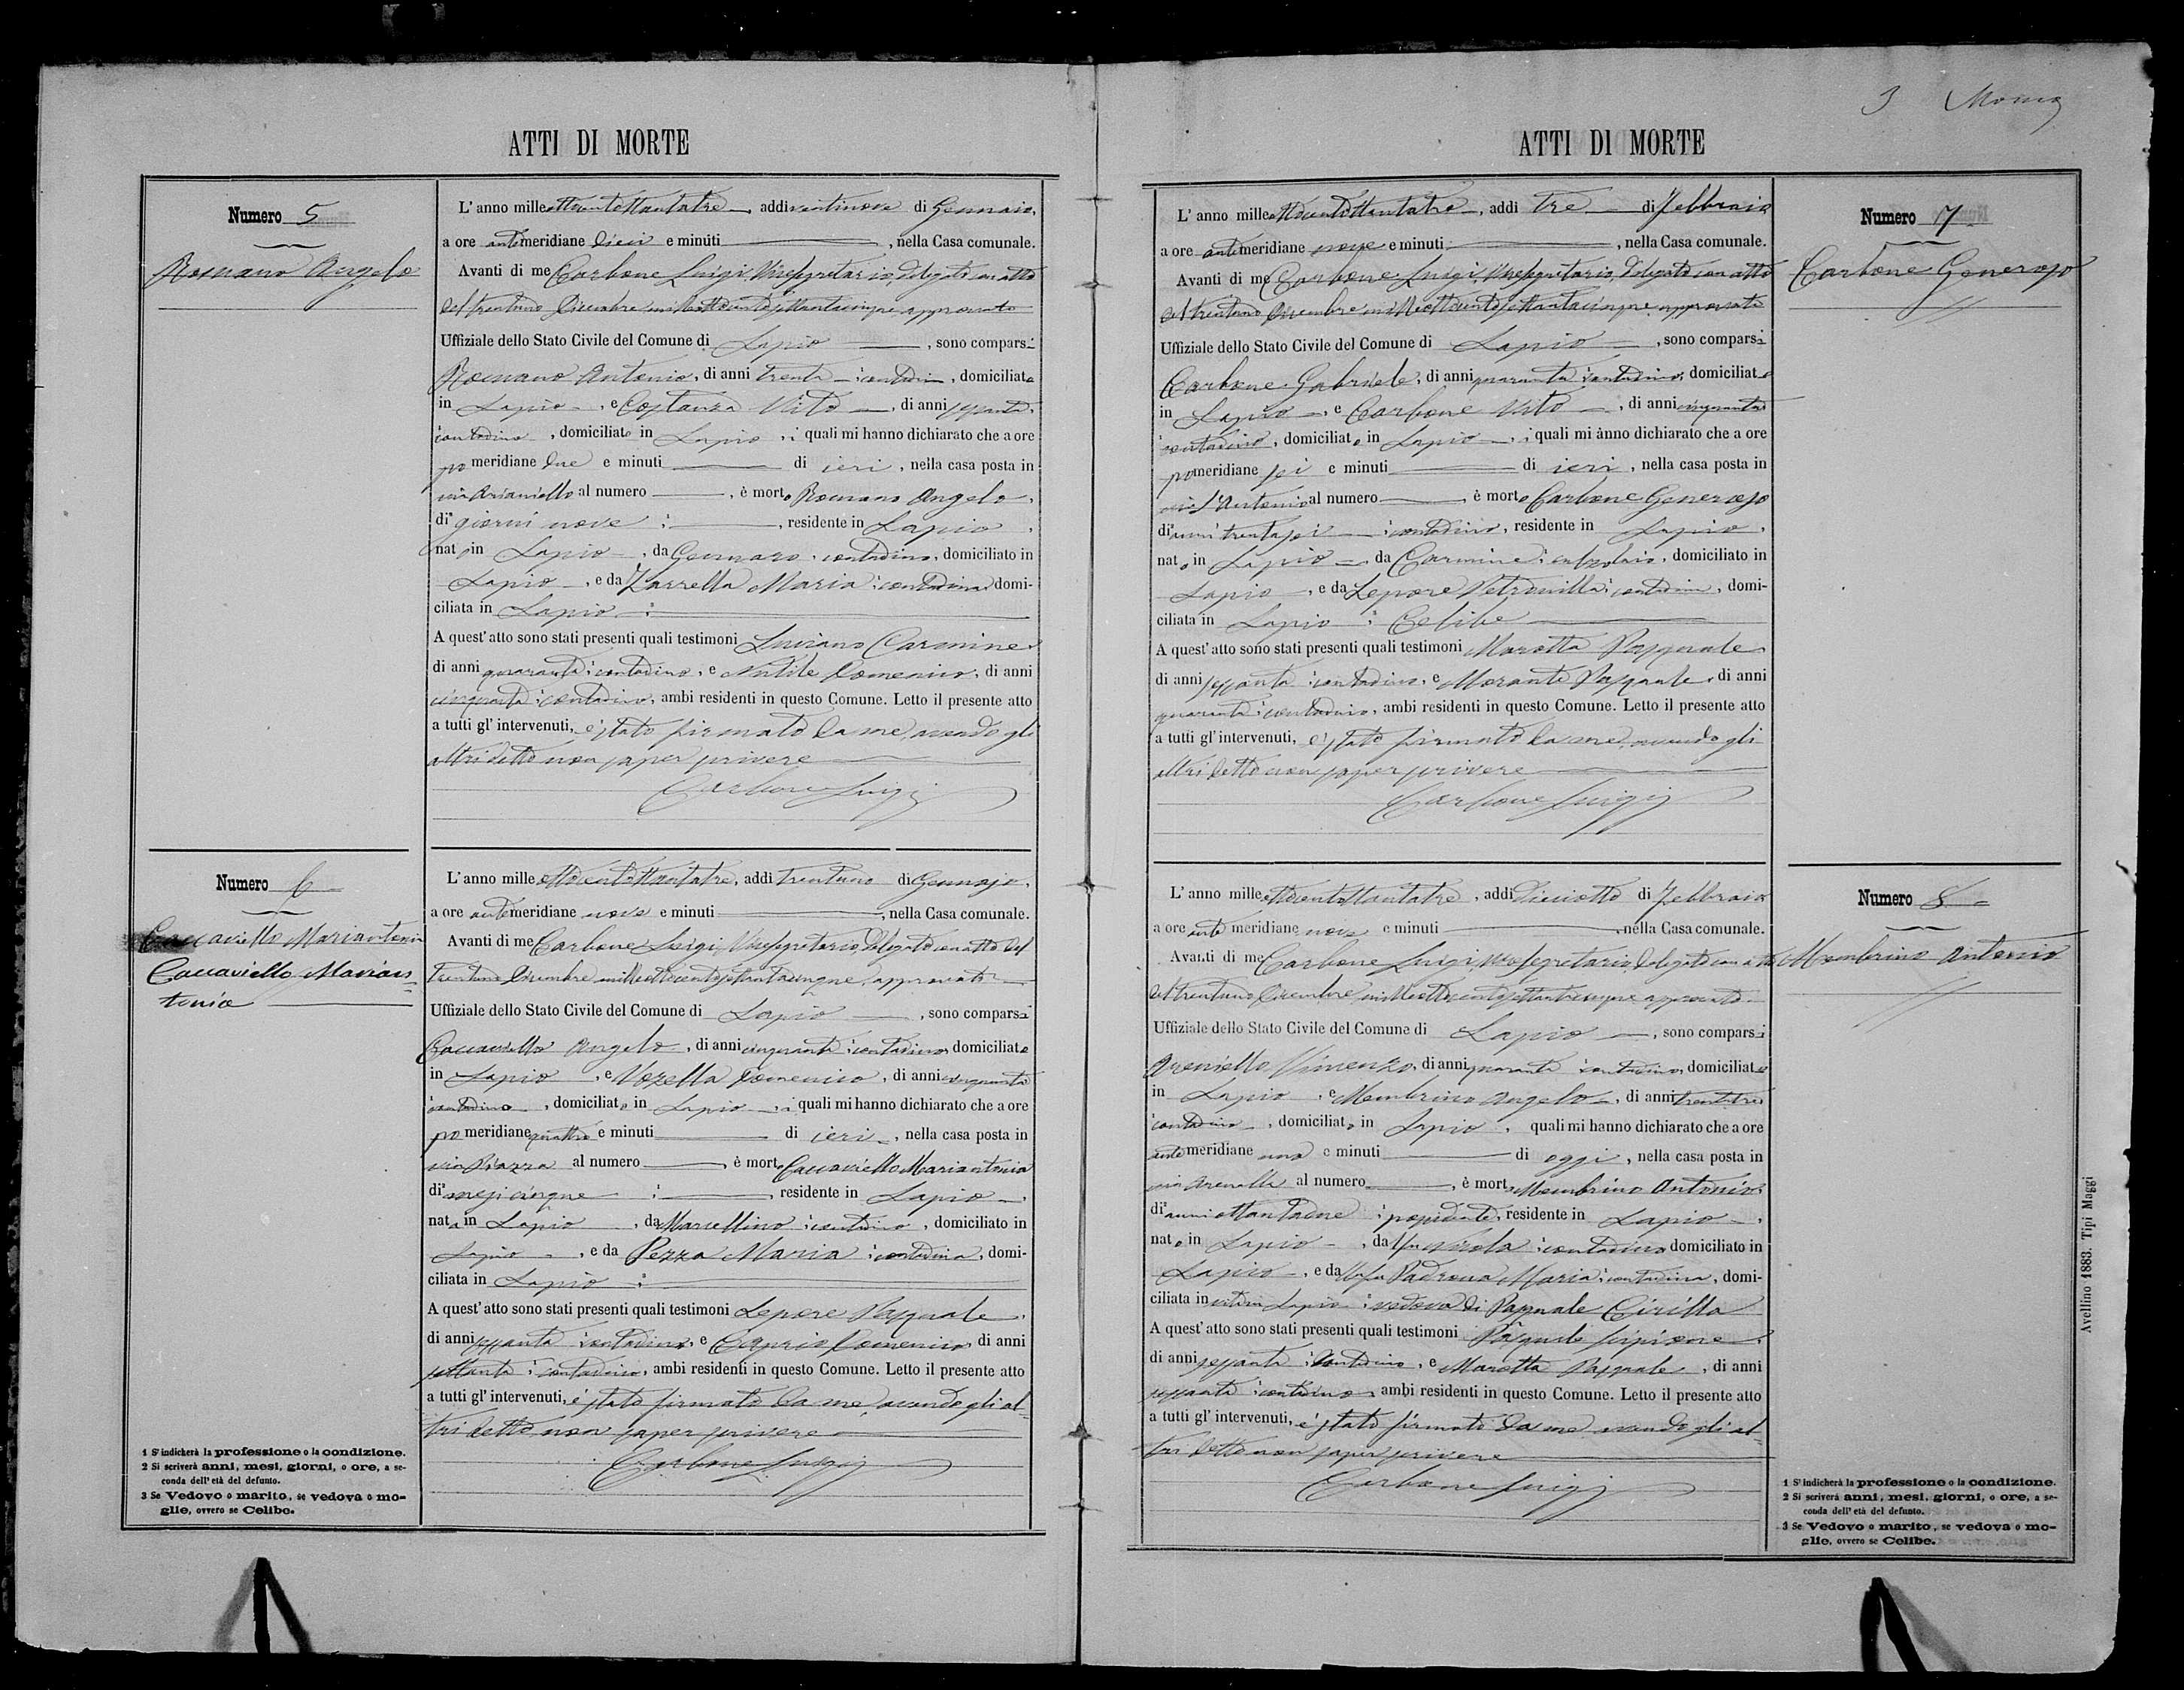 3 Mona
ATTI DI MORTE
Numero 5
Romano Angelo
L'anno milleottocentottantatre, addi ventinove di Gennaio,
a ore antimeridiane dieci e minuti, nella Casa comunale.
Avanti di me Carbone Luigi Vicesegretario, delegato con atto
del trentuno Dicembre milleottocentosettantacinque approvato
Uffiziale dello Stato Civile del Comune di Lapio, sono comparsi
Romano Antonio, di anni trenta, contadino, domiciliato
in Lapio, e Costanza Vito, di anni sessanta,
contadino, domiciliato in Lapio, i quali mi hanno dichiarato che a ore
pomeridiane due e minuti di ieri, nella casa posta in
via Arianiello al numero, è morto Romano Angelo,
di giorni nove, residente in Lapio,
nato in Lapio, da Gennaro, contadino, domiciliato in
Lapio, e da Zarrella Maria, contadina, domi-
ciliata in Lapio
A quest'atto sono stati presenti quali testimoni Luciano Carmine
di anni quaranta, contadino, e Nutile Domenico, di anni
cinquanta, contadino, ambi residenti in questo Comune. Letto il presente atto
a tutti gl'intervenuti, è stato firmato da me, avendo gli
altri detto non saper scrivere
Carbone Luigi
Numero 6
Caccaviello Mariantonia
Caccaviello Marian=
tonia
L'anno milleottocentottantatre, addi trentuno di Gennajo,
a ore antimeridiane nove e minuti, nella Casa comunale.
Avanti di me Carbone Luigi Vicesegretario, delegato con atto del
trentuno Dicembre milleottocentosettantacinque, approvato
Uffiziale dello Stato Civile del Comune di Lapio, sono comparsi
Caccaviello Angelo, di anni cinquanta, contadino, domiciliato
in Lapio, e Vozella Domenico, di anni cinquanta
contadino, domiciliato in Lapio, i quali mi hanno dichiarato che a ore
pomeridiane quattro e minuti di ieri, nella casa posta in
via Piazza al numero, è morta Caccaviello Mariantonia
di mesi cinque, residente in Lapio,
nata in Lapio, da Marcellino, contadino, domiciliato in
Lapio, e da Pezza Maria, contadina, domi-
ciliata in Lapio
A quest'atto sono stati presenti quali testimoni Lepore Pasquale,
di anni sessanta, contadino, e Caprio Domenico, di anni
settanta, contadino, ambi residenti in questo Comune. Letto il presente atto
a tutti gl'intervenuti, è stato firmato da me, avendo gli al-
tri detto non saper scrivere
Carbone Luigi
1 S'indicherà la professione o la condizione.
2 Si scriverà anni, mesi, giorni, o ore, a se-
conda dell'età del defunto.
3 Se Vedovo o marito, se vedova o mo-
glie, ovvero se Celibe.
ATTI DI MORTE
Numero 7
Carbone Generoso
L'anno milleottocentottantatre, addi tre di Febbraio
a ore antimeridiane nove e minuti, nella Casa comunale.
Avanti di me Carbone Luigi, Vicesegretario, delegato con atto
del trentuno Dicembre milleottocentosettantacinque, approvato
Uffiziale dello Stato Civile del Comune di Lapio, sono comparsi
Carbone Gabriele, di anni quaranta, contadino, domiciliato
in Lapio, e Carbone Vito, di anni cinquanta
contadino, domiciliato in Lapio, i quali mi ànno dichiarato che a ore
pomeridiane sei e minuti di ieri, nella casa posta in
via S. Antonio al numero, è morto Carbone Generoso
di anni trentasei, contadino, residente in Lapio,
nato in Lapio, da Carmine, calzolaio, domiciliato in
Lapio, e da Lepore Petronilla, contadina, domi-
ciliata in Lapio, Celibe
A quest'atto sono stati presenti quali testimoni Marotta Pasquale
di anni sessanta, contadino, e Morante Pasquale, di anni
quaranta, contadino, ambi residenti in questo Comune. Letto il presente atto
a tutti gl'intervenuti, è stato firmato da me, avendo gli
altri detto non saper scrivere
Carbone Luigi
Numero 8
Membrino Antonio
L'anno milleottocentottantatre, addi Diciotto di Febbraio
a ore antimeridiane nove e minuti, nella Casa comunale.
Avanti di me Carbone Luigi, Vicesegretario, delegato con atto
del trentuno Dicembre milleottocentosettantacinque approvato
Uffiziale dello Stato Civile del Comune di Lapio, sono comparsi
Areniello Vincenzo, di anni quaranta, contadino, domiciliato
in Lapio, e Membrino Angelo, di anni trentatre
contadino, domiciliato in Lapio, quali mi hanno dichiarato che a ore
antimeridiane una e minuti di oggi, nella casa posta in
via Arenella al numero, è morto Membrino Antonio,
di anni ottantadue, possidente, residente in Lapio,
nato in Lapio, dal fu Nicola, contadino domiciliato in
Lapio, e da Padrona Maria, contadina, domi-
ciliata in vita in Lapio, vedova di Pasquale Cirilla
A quest'atto sono stati presenti quali testimoni Pasquale Scipione
di anni sessanta, contadino, e Marotta Pasquale, di anni
sessanta, contadino, ambi residenti in questo Comune. Letto il presente atto
a tutti gl'intervenuti, è stato firmato da me avendo gli al-
tri detto non saper scrivere
Carbone Luigi
1 S'indicherà la professione o la condizione.
2 Si scriverà anni, mesi, giorni, o ore, a se-
conda dell'età del defunto.
3 Se Vedovo o marito, se vedova o mo-
glie, ovvero se Celibe.
Avellino 1883. Tipi Maggi